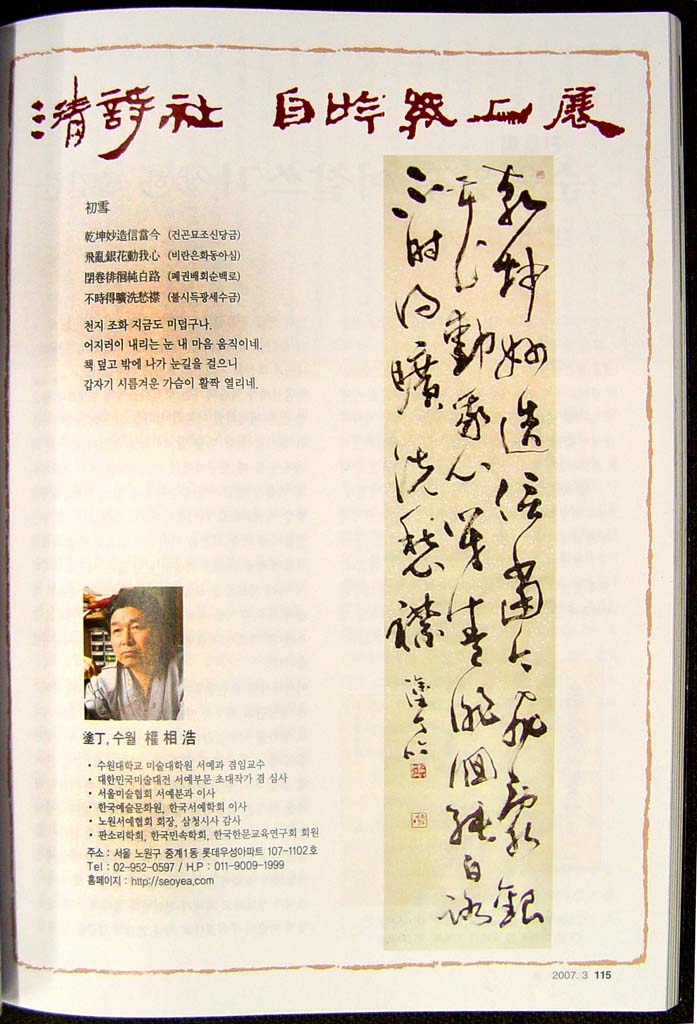 淸詩社 自吟 展
初雪
乾坤妙造信當今 (건곤묘조신당금)
飛亂銀花動我心 (비란은화동아심)
閉卷徘徊純白路 (폐권배회순백로)
不時得曠洗愁襟 (불시득광세수금)
천지 조화 지금도 미덥구나.
어지러이 내리는 눈 내 마음 움직이네.
책 덮고 밖에 나가 눈길을 걸으니
갑자기 시름겨운 가슴이 활짝 열리네.
乾坤妙造信當今飛亂銀
花動我心閉卷徘徊純白路
不時得曠洗愁襟 塗丁
塗丁, 수월 權相浩
• 수원대학교 미술대학원 서예과 겸임교수
• 대한민국미술대전 서예부문 초대작가 겸 심사
• 서울미술협회 서예분과 이사
• 한국예술문화원, 한국서예학회 이사
• 노원서예협회 회장, 삼청시사 감사
• 판소리학회, 한국민속학회, 한국한문교육연구회 회원
주소 : 서울 노원구 중계1동 롯데우성아파트 107-1102호
Tel : 02-952-0597 / H.P : 011-9009-1999
홈페이지 : http://seoyea.com
2007. 3 115